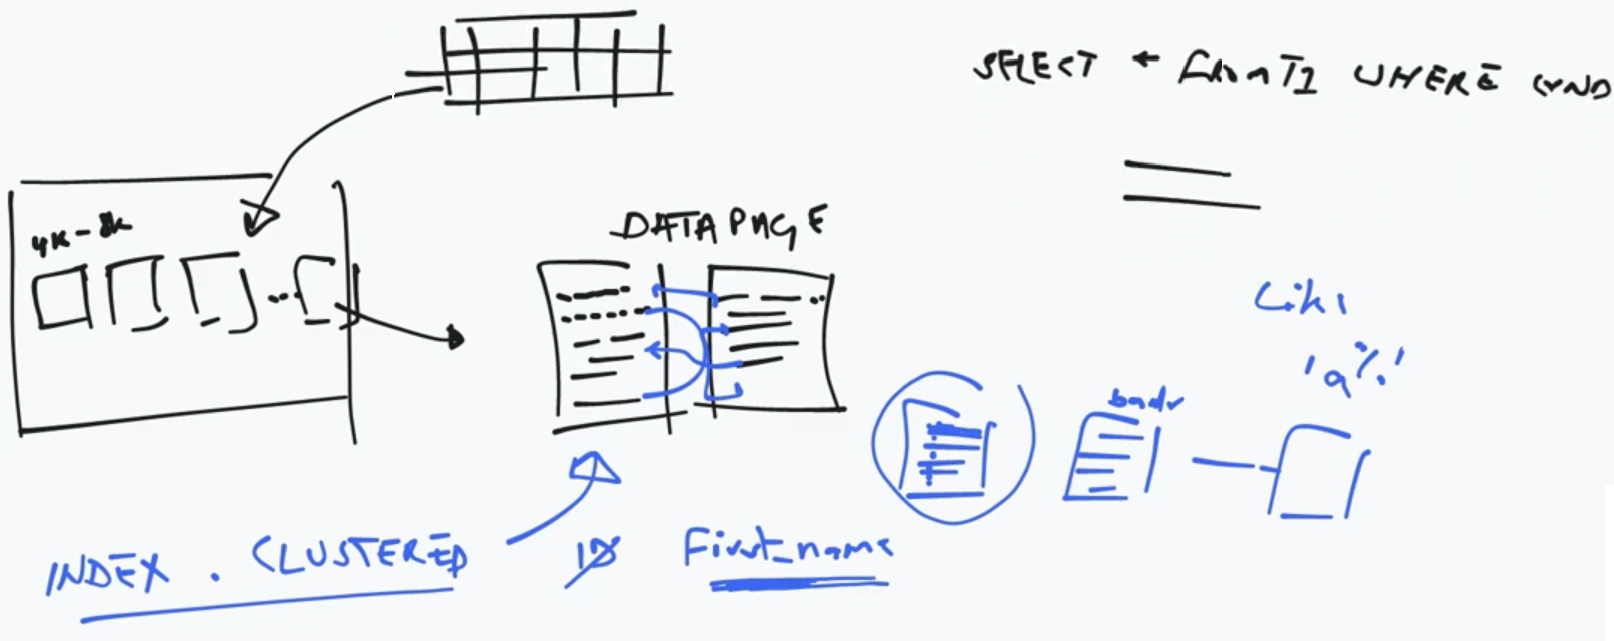 SELECT * from T1 WHERE COND
4K - 8K
DATA PAGE
Like
'a%'
INDEX . CLUSTERED
ID
First_name